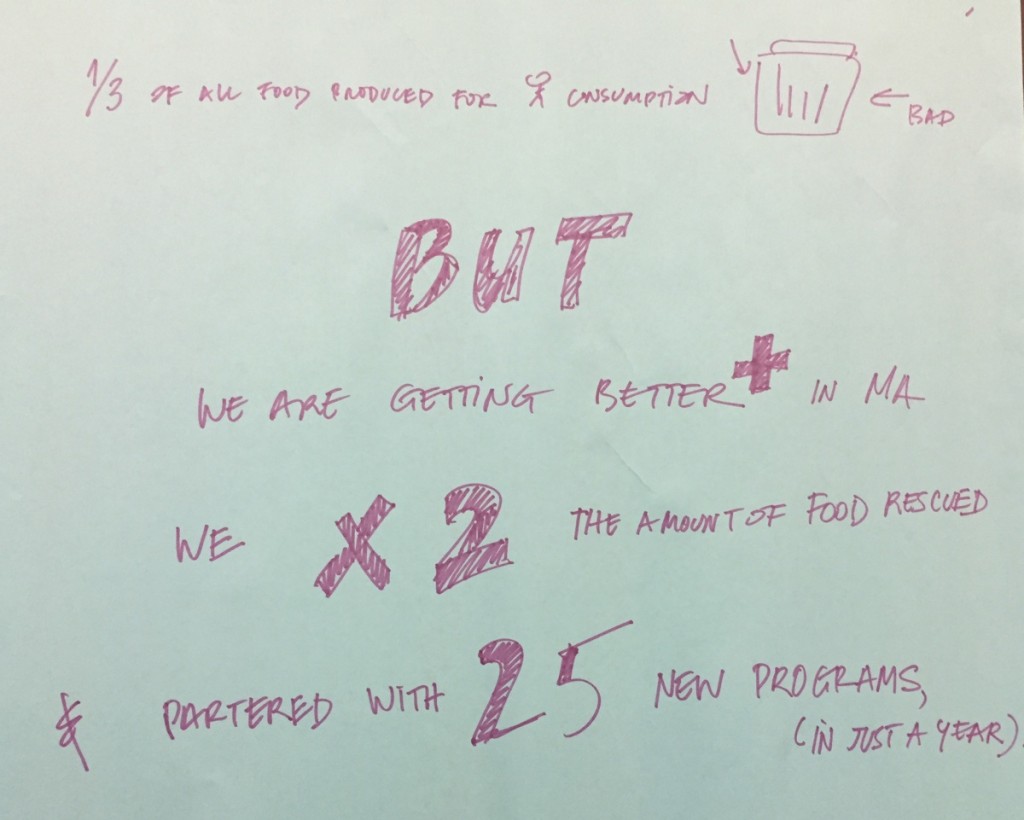 1/3 OF ALL FOOD PRODUCED FOR CONSUMPTION
BAD
BUT
WE ARE GETTING BETTER+ IN MA
WE X2 THE AMOUNT OF FOOD RESCUED
& PARTERED WITH 25 NEW PROGRAMS,
(IN JUST A YEAR)